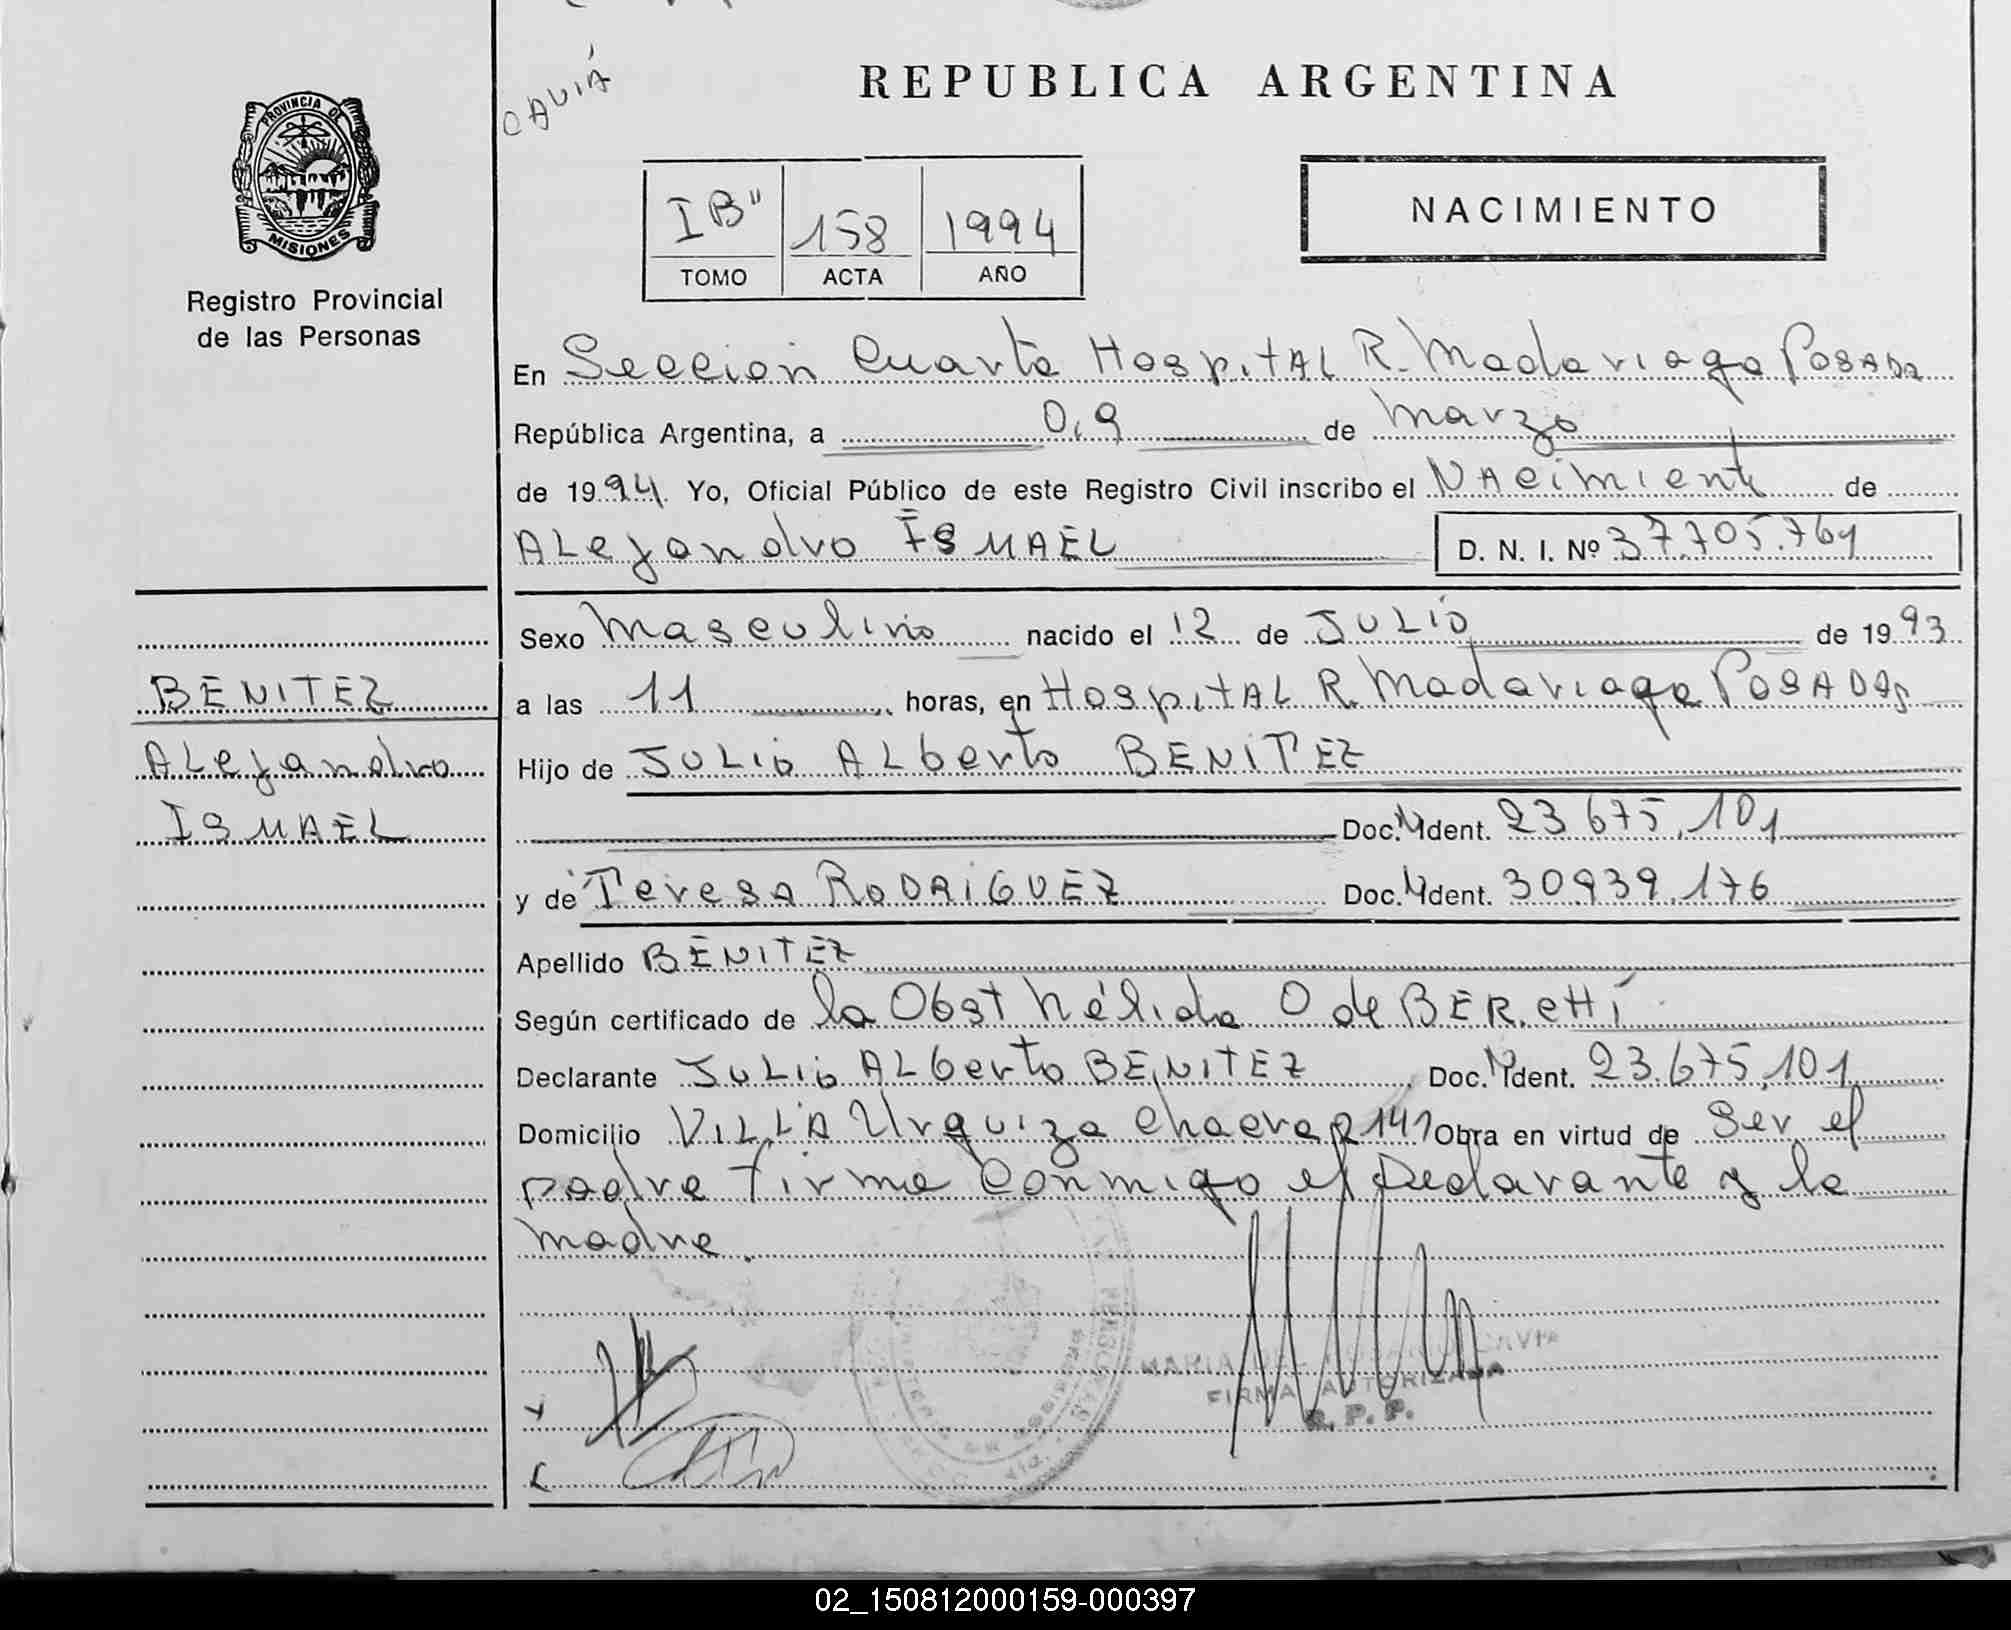 CAVIÁ
REPUBLICA ARGENTINA
PROVINCIA DE
MISIONES
Registro Provincial
de las Personas
I B" 158 1994
TOMO ACTA AÑO
NACIMIENTO
En Seccion Cuarta Hospital R. Madariaga Posadas
República Argentina, a 0,9 de Marzo
de 1994. Yo, Oficial Público de este Registro Civil inscribo el Nacimiento de
Alejandro ISMAEL D. N. I. Nº 37.705.761
Sexo Masculino nacido el 12 de JULIO de 1993
a las 11 horas, en Hospital R. Madariaga Posadas
BENITEZ
Alejandro
ISMAEL
Hijo de JULIO Alberto BENITEZ
Doc. Ident. 23.675.101
y de Teresa RODRIGUEZ Doc. Ident. 30.939.176
Apellido BENITEZ
Según certificado de la Obst Nélida O de
Declarante Julio Alberto BENITEZ Doc. Ident. 23.675.101
Domicilio VILLA Urquiza Chacra 141 Obra en virtud de Ser el
padre firma Conmigo el Declarante y la
madre.
MARIA
FIRMA AUTORIZADA
R. P. P.
02_150812000159-000397